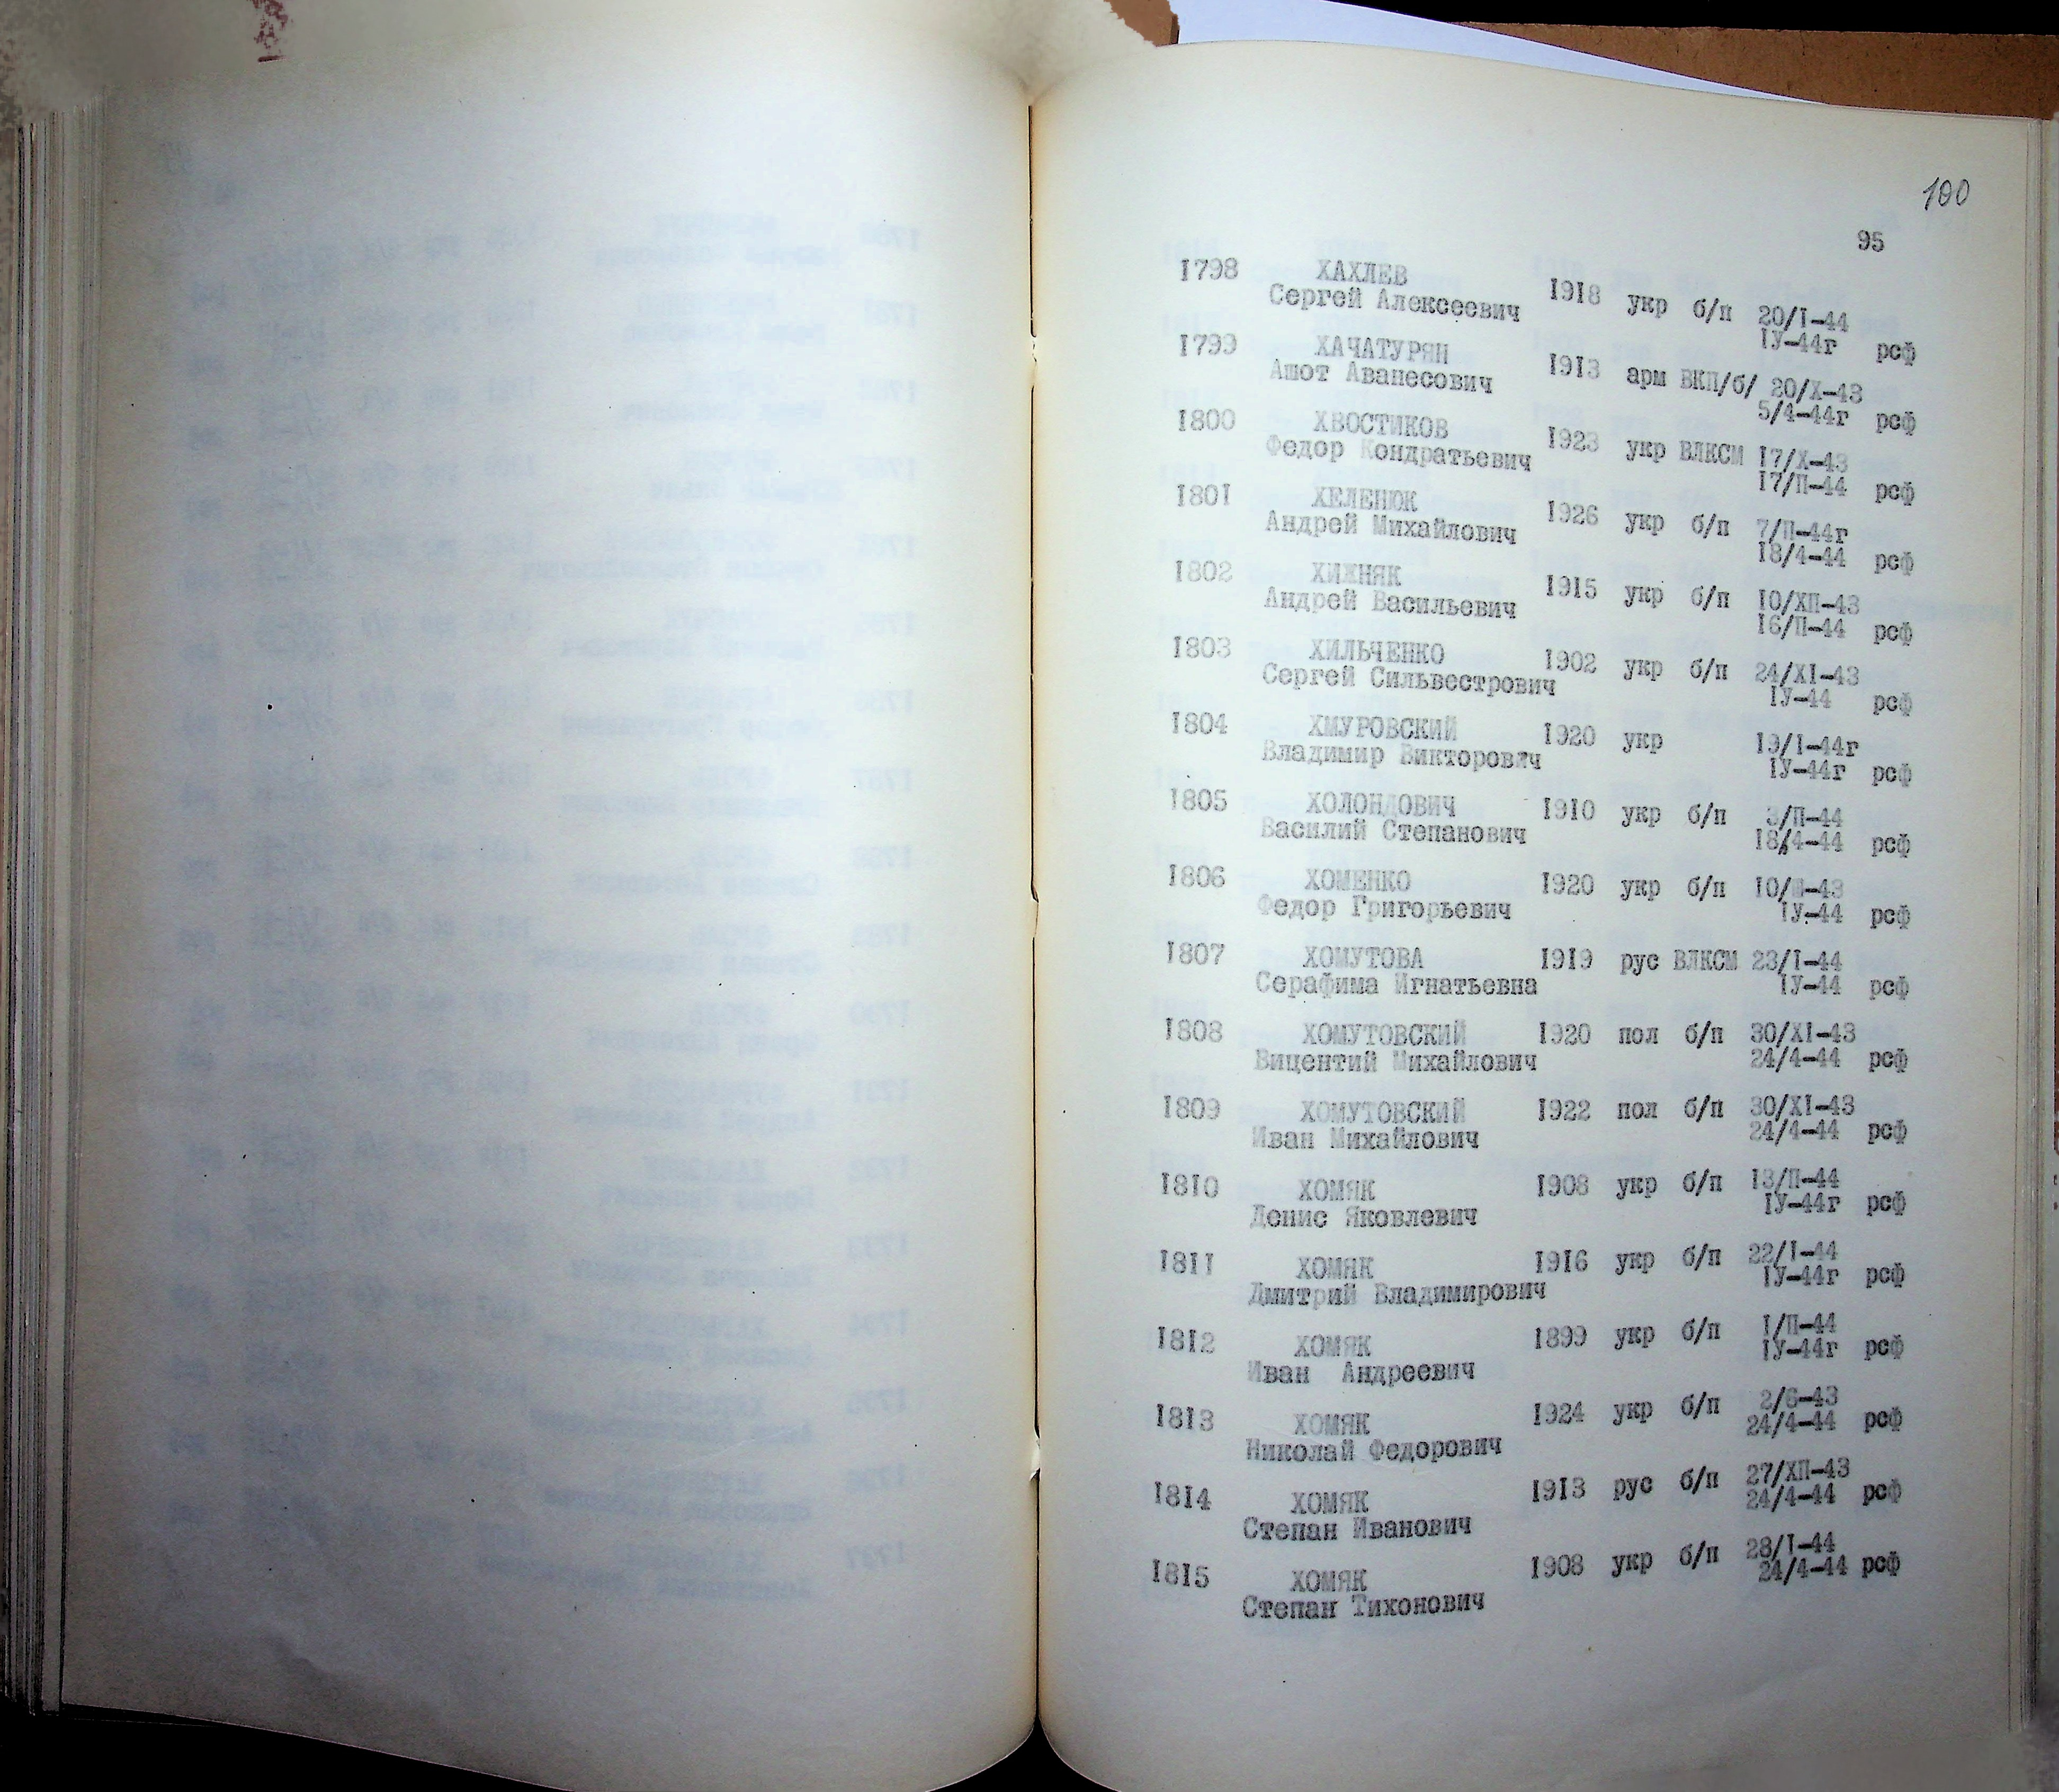 100
95
1798 ХАХЛЕВ
Сергей Алексеевич 1918 укр б/п 20/I-44
IУ-44г рсф
1799 ХАЧАТУРЯН
Ашот Аванесович 1913 арм ВКП/б/ 20/X-43
5/4-44г рсф
1800 ХВОСТИКОВ
Федор Кондратьевич 1923 укр ВЛКСМ 17/X-43
17/П-44 рсф
1801 ХЕЛЕНЮК
Андрей Михайлович 1926 укр б/п 7/П-44г
18/4-44 рсф
1802 ХИЖНЯК
Андрей Васильевич 1915 укр б/п 10/ХП-43
16/П-44 рсф
1803 ХИЛЬЧЕНКО
Сергей Сильвестрович 1902 укр б/п 24/XI-43
IУ-44 рсф
1804 ХМУРОВСКИЙ 1920 укр 19/I-44г
Владимир Викторович IУ-44г рсф
1805 ХОЛОНДОВИЧ 1910 укр б/п 3/П-44
Василий Степанович 18/4-44 рсф
1806 ХОМЕНКО 1920 укр б/п
Федор Григорьевич IУ-44 рсф
1807 ХОМУТОВА 1919 рус ВЛКСМ 23/I-44
Серафима Игнатьевна IУ-44 рсф
1808 ХОМУТОВСКИЙ 1920 пол б/п 30/XI-43
Вицентий Михайлович 24/4-44 рсф
1809 ХОМУТОВСКИЙ 1922 пол б/п 30/XI-43
Иван Михайлович 24/4-44 рсф
1810 ХОМЯК 1908 укр б/п 13/П-44
Денис Яковлевич IУ-44г рсф
1811 ХОМЯК 1916 укр б/п 22/I-44
Дмитрий Владимирович IУ-44г рсф
1812 ХОМЯК 1899 укр б/п 1/П-44
Иван Андреевич IУ-44г рсф
1813 ХОМЯК 1924 укр б/п 2/6-43
Николай Федорович 24/4-44 рсф
1814 ХОМЯК 1913 рус б/п 27/ХП-43
Степан Иванович 24/4-44 рсф
1815 ХОМЯК 1908 укр б/п 28/I-44
Степан Тихонович 24/4-44 рсф